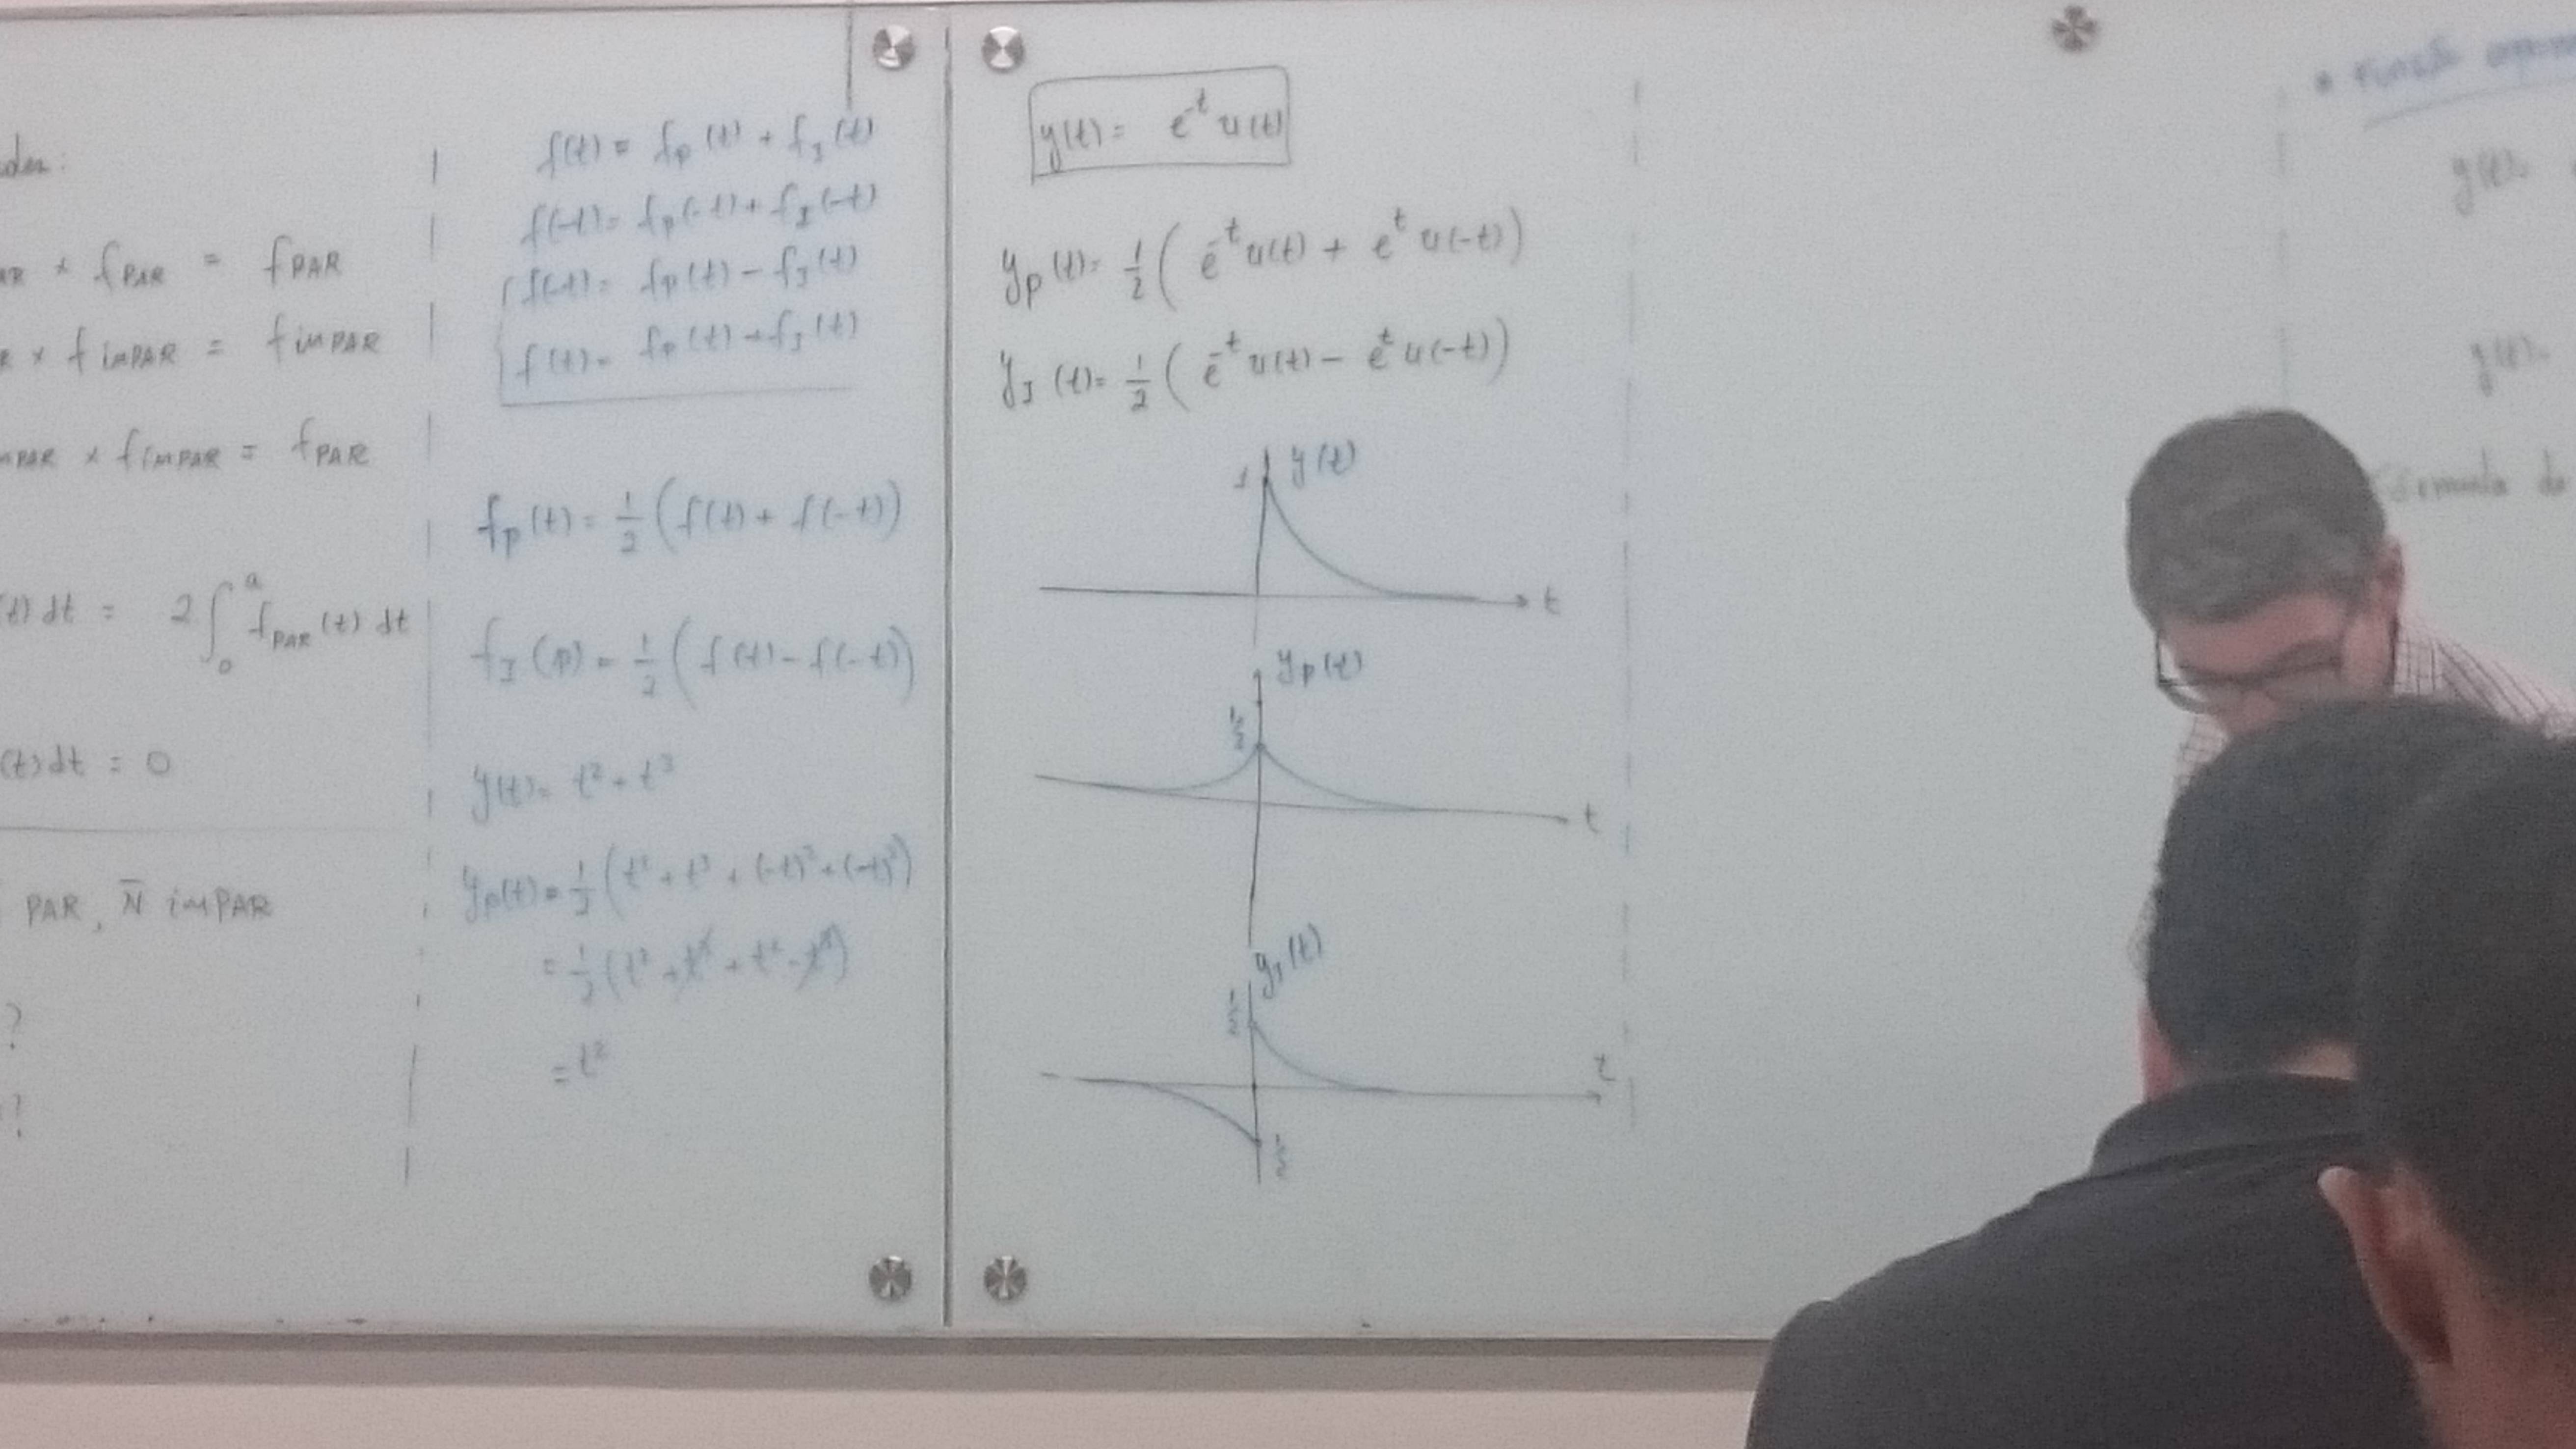 × fPAR = fPAR
× fimPAR = fimPAR
× fimPAR = fPAR
(t) dt = 2∫₀ᵃ fPAR (t) dt
(t) dt = 0
PAR, N̄ imPAR
?
?
f(t) = fp (t) + fI (t)
f(-t) = fp (-t) + fI (-t)
f(-t) = fp (t) - fI (t)
f(t) = fp (t) + fI (t)
fp (t) = 1/2 (f(t) + f(-t))
fI (t) = 1/2 (f(t) - f(-t))
y(t) = t² + t³
yp(t) = 1/2 (t² + t³ + (-t)² + (-t)³)
= 1/2 (t² + t³ + t² - t³)
= t²
y(t) = e⁻ᵗ u(t)
yp (t) = 1/2 (e⁻ᵗ u(t) + eᵗ u(-t))
yI (t) = 1/2 (e⁻ᵗ u(t) - eᵗ u(-t))
1 y(t)
t
yp (t)
1/2
t
yI (t)
1/2
t
1/2
y(t)=
y(t)=